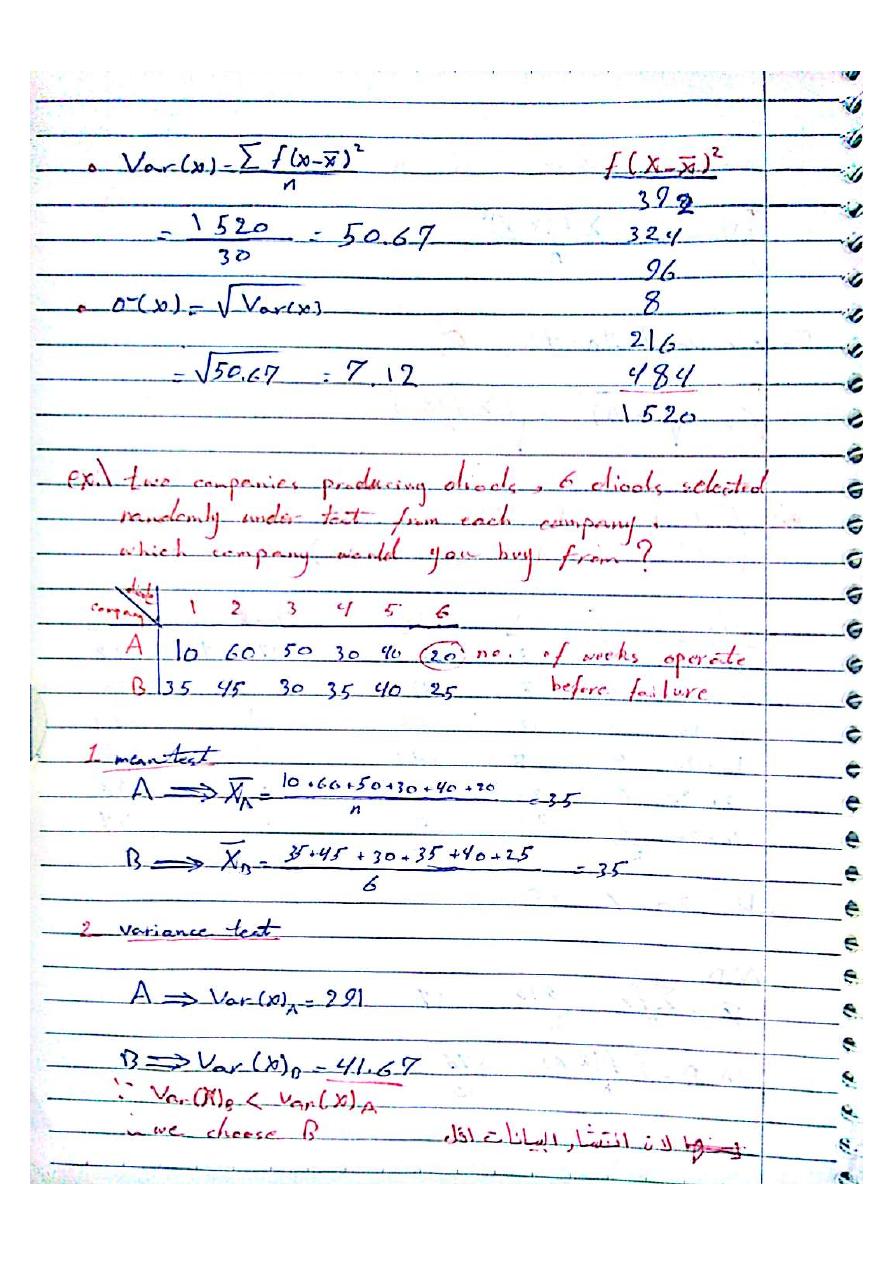 • Var(x) = Σ f(x-x̄)² / n
= 1520 / 30 = 50.67
• σ(x) = √Var(x)
= √50.67 = 7.12
f(x-x̄)²
392
324
96
8
216
484
1520
ex.\ two companies producing diods, 6 diods selected
randomly under test from each company.
which company would you buy from?
company 1 2 3 4 5 6
A 10 60 50 30 40 20 no. of weeks operate
B 35 45 30 35 40 25 before failure
1 mean test
A ⟹ X̄A = 10+60+50+30+40+20 / n = 35
B ⟹ X̄B = 35+45+30+35+40+25 / 6 = 35
2 variance test
A ⟹ Var(x)A = 291
B ⟹ Var(x)B = 41.67
∵ Var(x)B < Var(x)A
∴ we choose B لان انتشار البيانات اقل